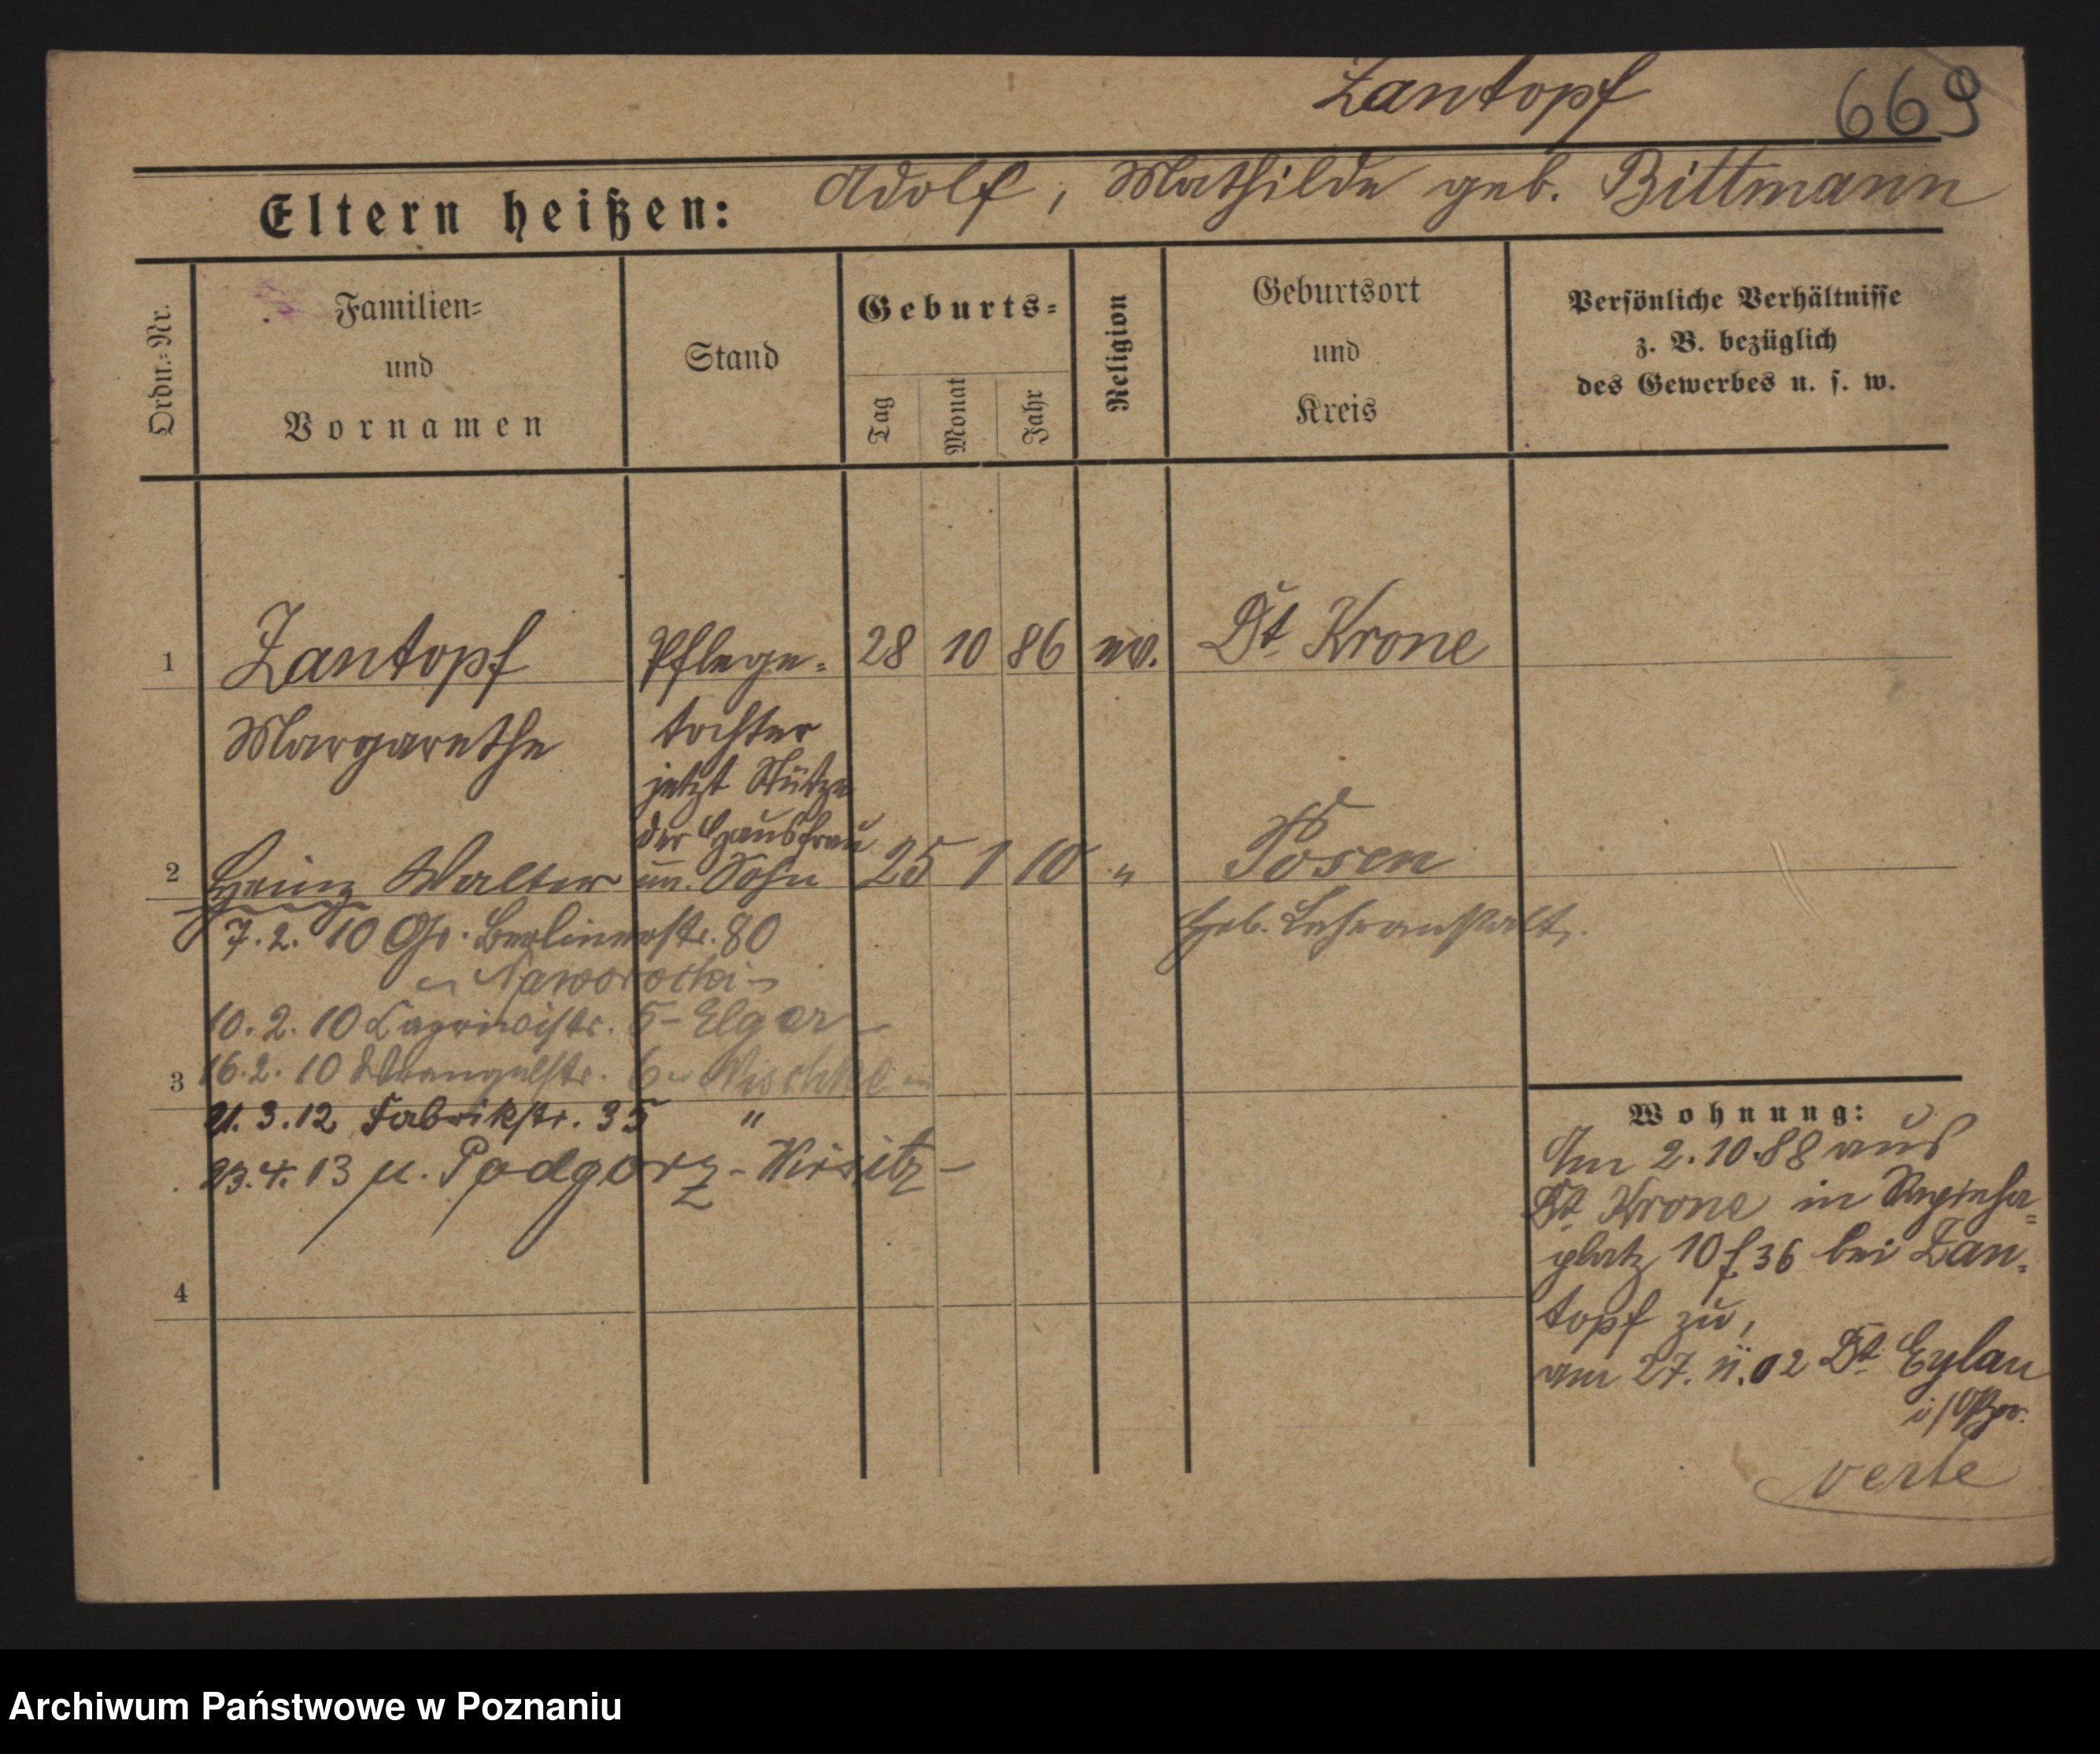 Zantopf 669
Eltern heißen: Adolf, Mathilde geb. Bittmann
Ordn.-Nr.
Familien-
und
Vornamen
Stand
Geburts-
Tag
Monat
Jahr
Religion
Geburtsort
und
Kreis
Persönliche Verhältnisse
z. B. bezüglich
des Gewerbes u. s. w.
1 Zantopf Pflege- 28 10 86 ev. Dt Krone
Margarethe tochter
jetzt Stütze
der Hausfrau
2 Heinz Walter un. Sohn 25 1 10 " Posen
Heb. Lehranstalt.
7.2.10 Gr. Berlinerstr. 80
Naworocki
10.2.10 Caprivistr. 5 - Elger -
3 16.2.10 Wrangelstr. 6 - Nischke -
21.3.12 Fabrikstr. 35 "
23.4.13 n. Podgorz - Wirsitz -
4
Wohnung:
Am 2.10.88 aus
Dt Krone in Sapieha-
platz 10 f 36 bei Zan-
topf zu,
am 27.11.02 Dt Eylau
i/Wpr.
verte
Archiwum Państwowe w Poznaniu